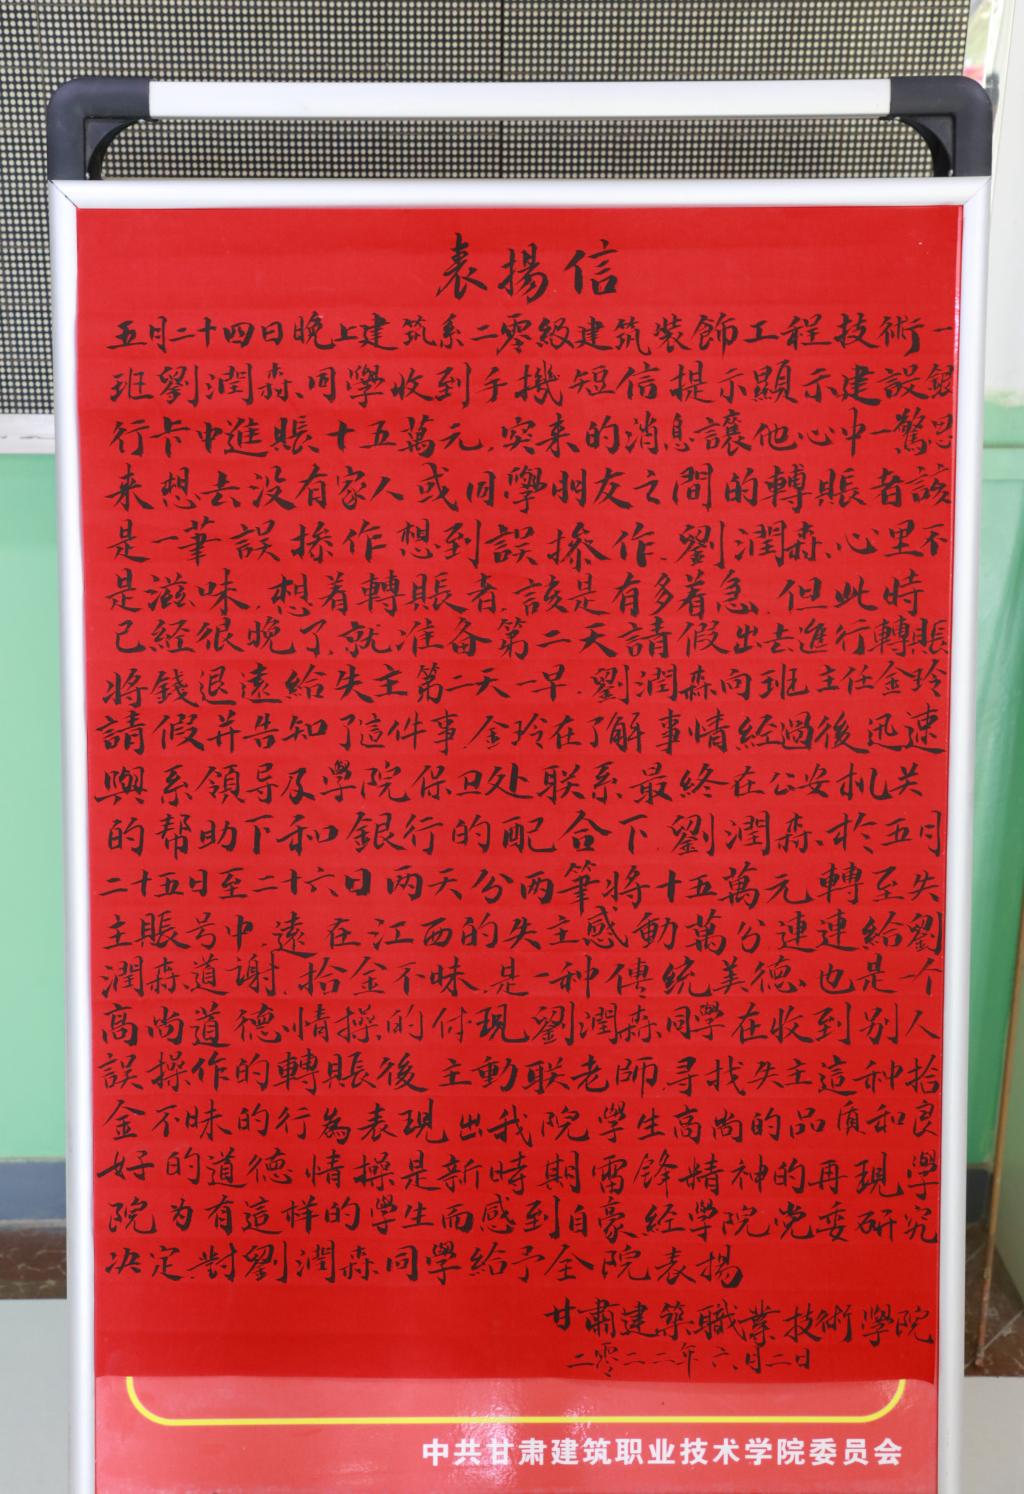 表揚信
五月二十四日晚上建筑系二零級建筑装飾工程技術一
班劉潤森同學收到手機短信提示顯示建設銀
行卡中進賬十五萬元,突来的消息讓他心中一驚思
来想去没有家人或同學朋友之間的轉賬者該
是一筆誤操作想到誤操作,劉潤森心里不
是滋味,想着轉賬者,該是有多着急,但此時
已經很晚了,就准备第二天請假出去進行轉賬
將錢退還給失主第二天一早,劉潤森向班主任金玲
請假并告知了這件事,金玲在了解事情經過後迅速
與系領导及學院保卫处联系最終在公安机关
的帮助下和銀行的配合下,劉潤森於五月
二十五日至二十六日两天分两筆將十五萬元轉至失
主賬号中,遠在江西的失主感動萬分連連給劉
潤森道謝,拾金不昧,是一种傳統美德也是个
高尚道德情操的体現劉潤森同学在收到别人
誤操作的轉賬後主動联老師,尋找失主這种拾
金不昧的行為表現出我院學生高尚的品質和良
好的道德情操是新時期雷鋒精神的再現學
院为有這样的學生而感到自豪經學院党委研究
决定,對劉潤森同學給予全院表揚
甘肅建築職業技術學院
二零二二年六月二日
中共甘肃建筑职业技术学院委员会